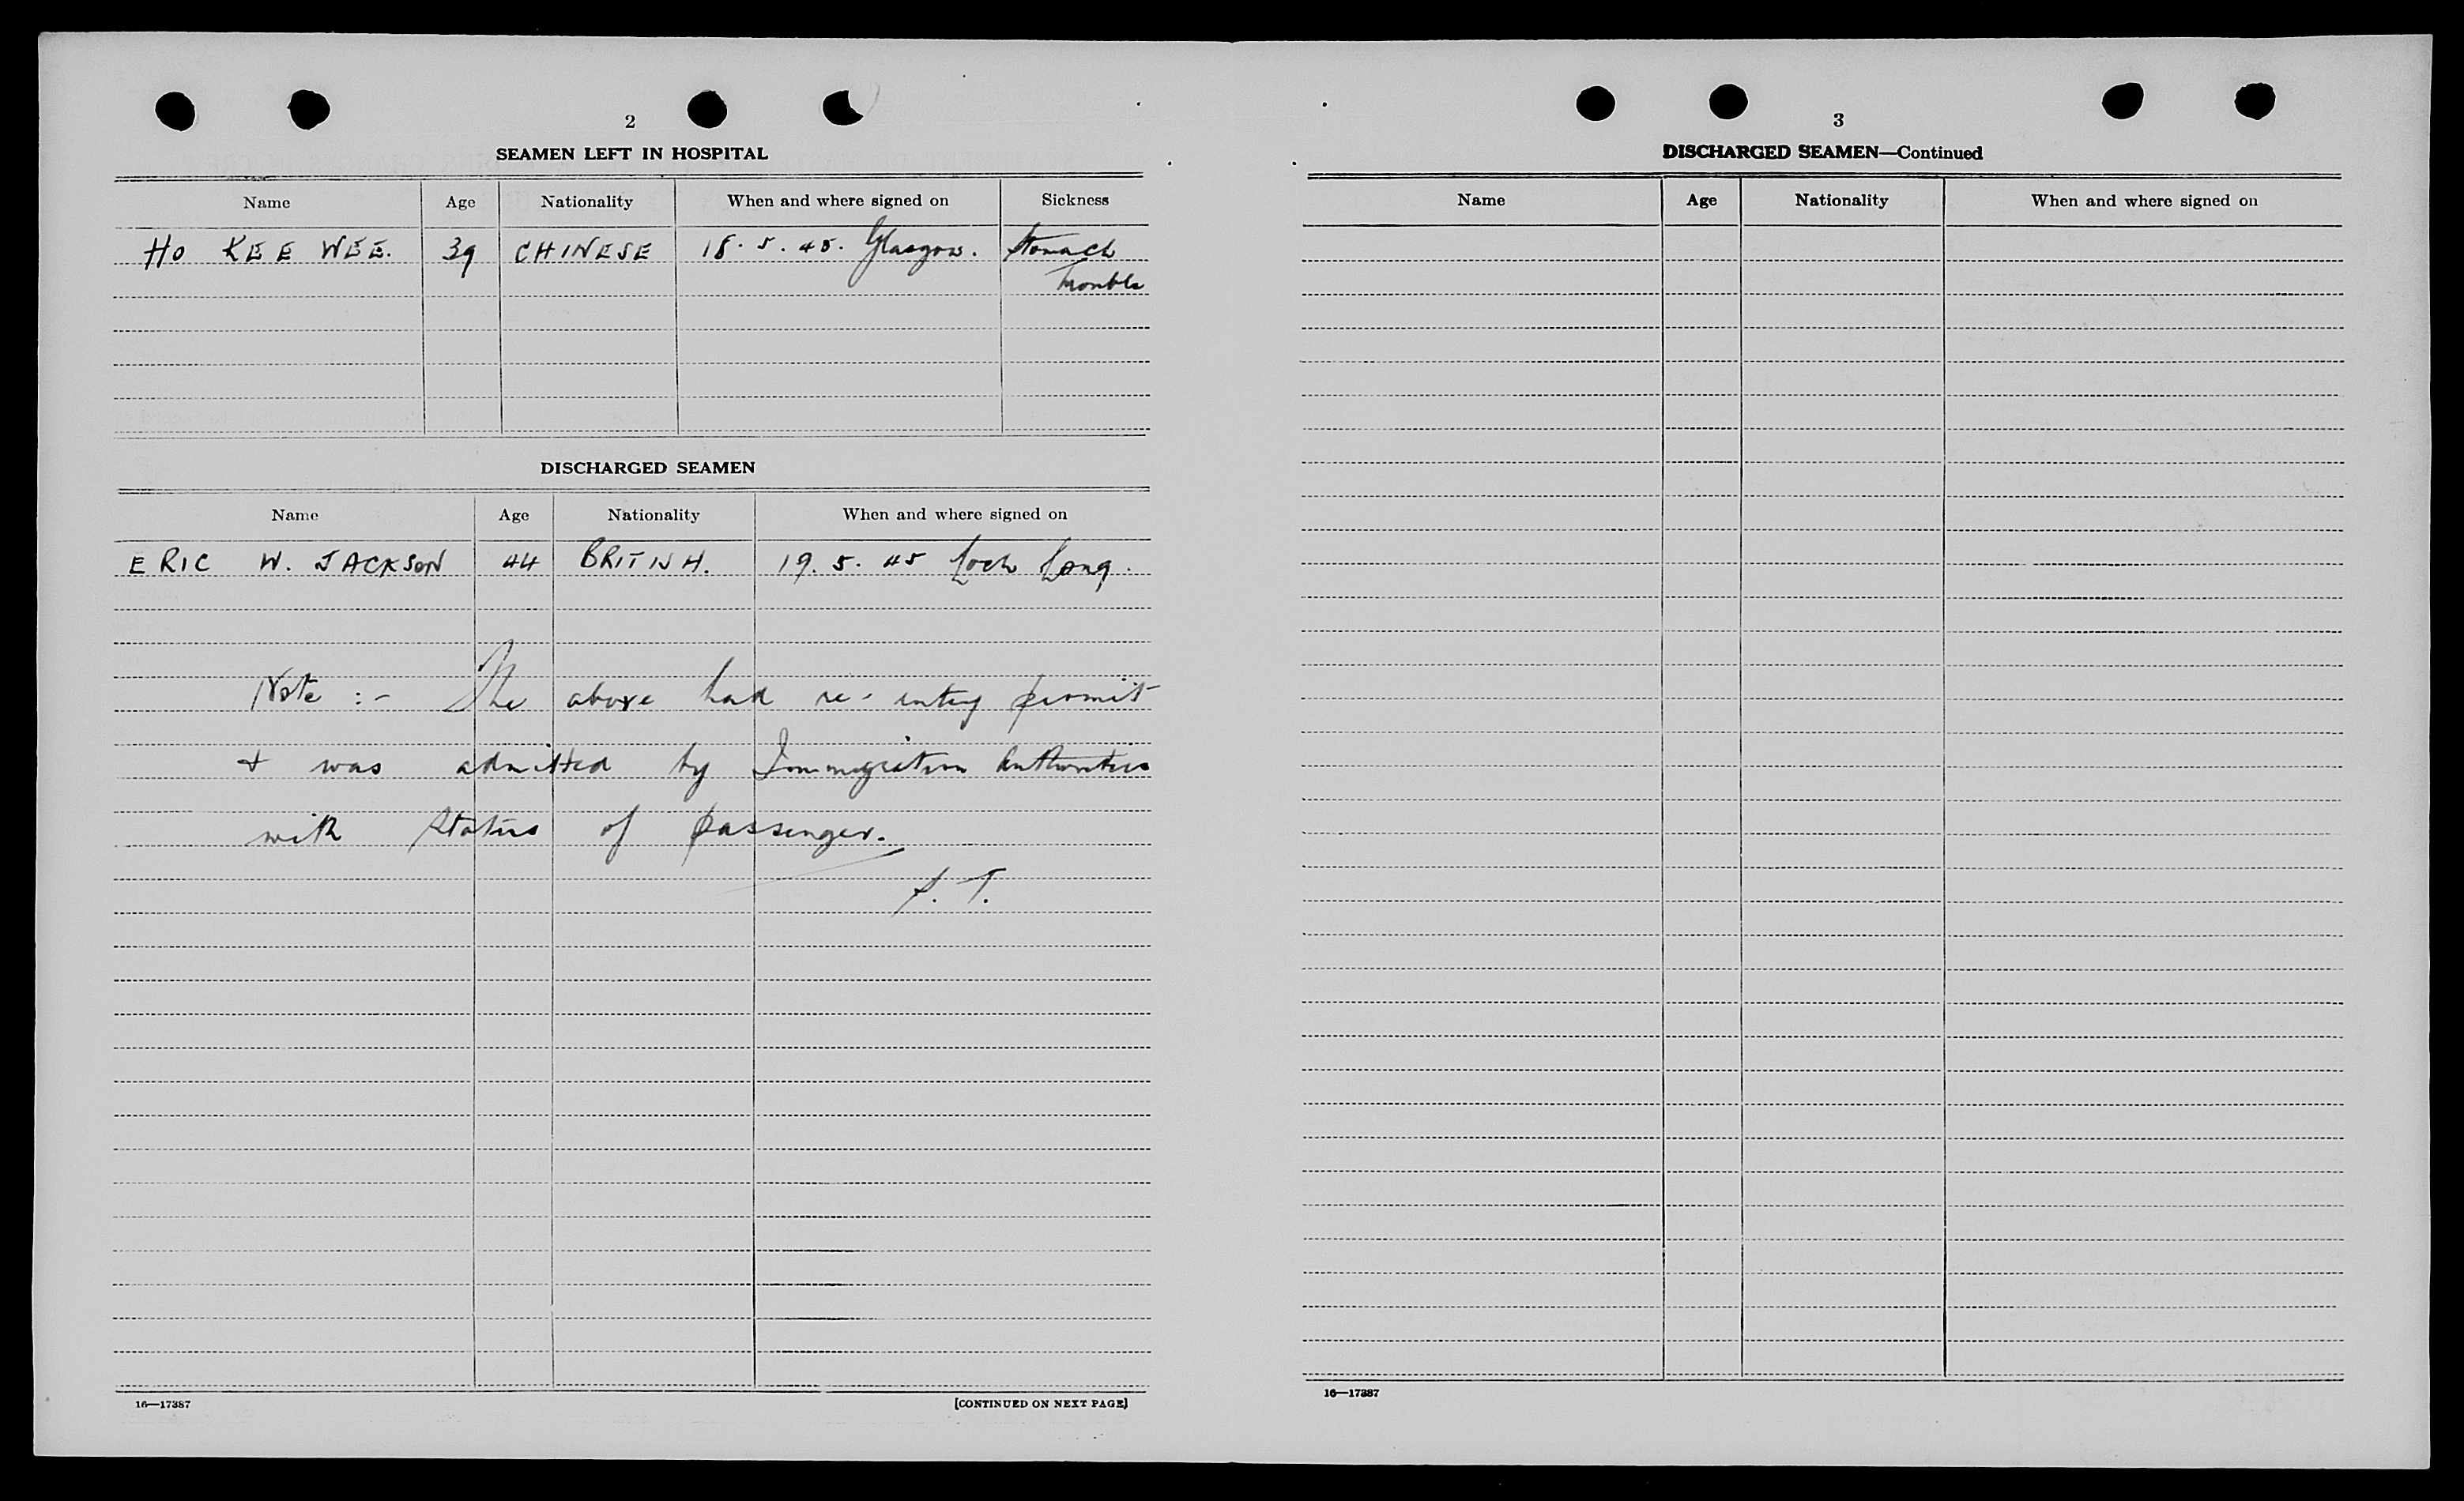 2
SEAMEN LEFT IN HOSPITAL
Name Age Nationality When and where signed on Sickness
HO KEE WEE. 39 CHINESE 18.5.45. Glasgow. Stomach
Trouble
DISCHARGED SEAMEN
Name Age Nationality When and where signed on
ERIC W. JACKSON 44 BRITISH. 19.5.45 Loch Long.
Note :- The above had re-entry permit
& was admitted by Immigration Authorities
with status of passenger.
S. T.
16—17387 [CONTINUED ON NEXT PAGE]
3
DISCHARGED SEAMEN—Continued
Name Age Nationality When and where signed on
16—17387